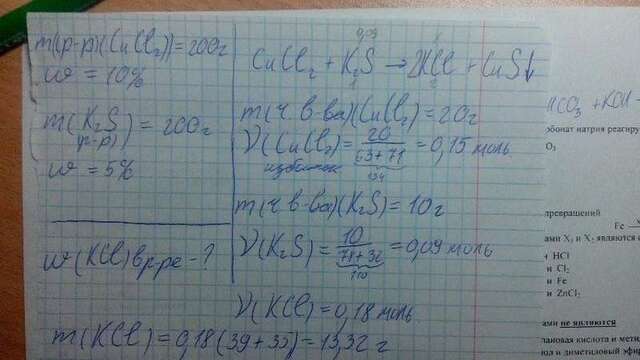 m(р-р)(CuCl₂)=200г
w = 10%
m(K₂S р-р) = 200г
w = 5%
w (KCl) в р-ре - ?
0,09
CuCl₂ + K₂S → 2KCl + CuS↓
m(ч. в-ва)(CuCl₂) = 20г
ν(CuCl₂) = 20/(63+71) = 0,15 моль
избыток
134
m(ч. в-ва)(K₂S) = 10г
ν(K₂S) = 10/(78+32) = 0,09 моль
110
ν(KCl) = 0,18 моль
m(KCl) = 0,18(39+35) = 13,32 г
HCO₃ + KOH
бонат натрия реагиру
O₃
превращений
Fe
ами X₁ и X₂ являются
и HCl
и Cl₂
и Fe
и ZnCl₂
ами не являются
лановая кислота и мета
л и диметиловый эфир